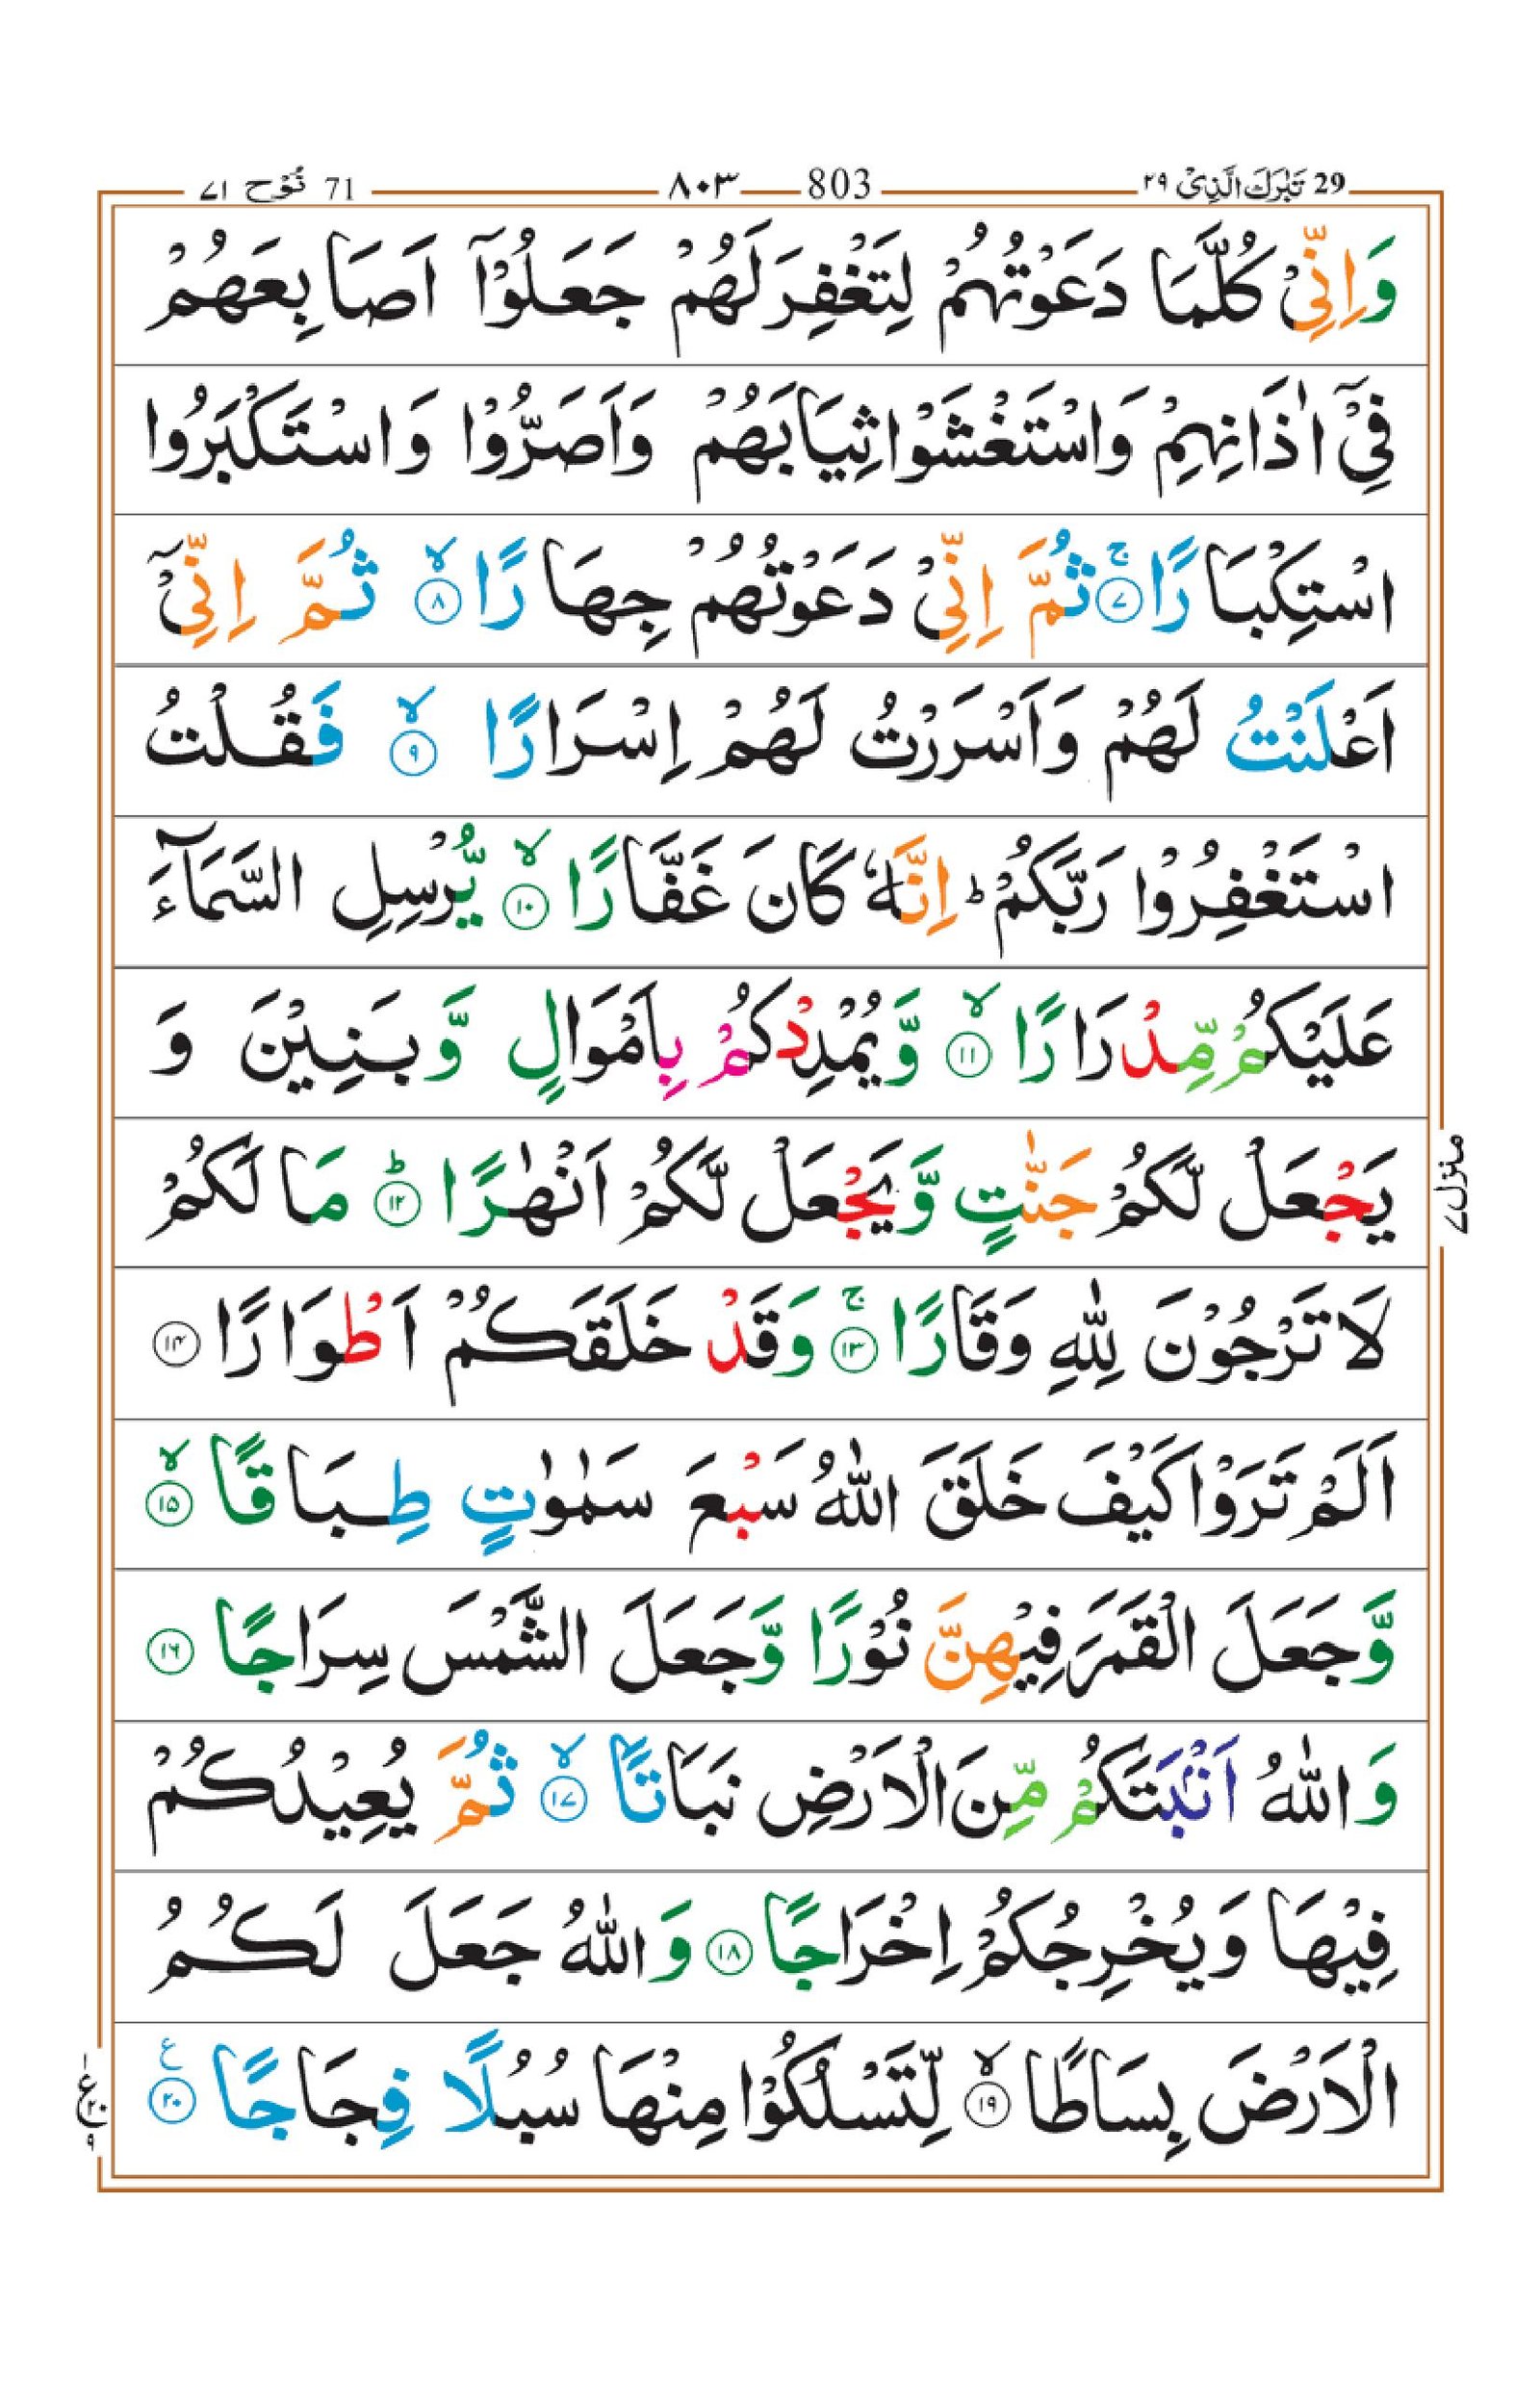 29 تَبٰرَكَ الَّذِیْ ۲۹ 803 ۸۰۳ 71 نُوْح ۷۱
وَاِنِّیْ كُلَّمَا دَعَوْتُهُمْ لِتَغْفِرَ لَهُمْ جَعَلُوْۤا اَصَابِعَهُمْ
فِیْۤ اٰذَانِهِمْ وَاسْتَغْشَوْا ثِیَابَهُمْ وَاَصَرُّوْا وَاسْتَكْبَرُوا
اسْتِكْبَارًا ۚ﴿۷﴾ ثُمَّ اِنِّیْ دَعَوْتُهُمْ جِهَارًا ۙ﴿۸﴾ ثُمَّ اِنِّیْۤ
اَعْلَنْتُ لَهُمْ وَاَسْرَرْتُ لَهُمْ اِسْرَارًا ۙ﴿۹﴾ فَقُلْتُ
اسْتَغْفِرُوْا رَبَّكُمْ ؕ اِنَّهٗ كَانَ غَفَّارًا ۙ﴿۱۰﴾ یُّرْسِلِ السَّمَآءَ
عَلَیْكُمْ مِّدْرَارًا ۙ﴿۱۱﴾ وَّیُمْدِدْكُمْ بِاَمْوَالٍ وَّبَنِیْنَ وَ
یَجْعَلْ لَّكُمْ جَنّٰتٍ وَّیَجْعَلْ لَّكُمْ اَنْهٰرًا ؕ﴿۱۲﴾ مَا لَكُمْ
لَا تَرْجُوْنَ لِلّٰهِ وَقَارًا ۚ﴿۱۳﴾ وَقَدْ خَلَقَكُمْ اَطْوَارًا ﴿۱۴﴾
اَلَمْ تَرَوْا كَیْفَ خَلَقَ اللّٰهُ سَبْعَ سَمٰوٰتٍ طِبَاقًا ۙ﴿۱۵﴾
وَّجَعَلَ الْقَمَرَ فِیْهِنَّ نُوْرًا وَّجَعَلَ الشَّمْسَ سِرَاجًا ﴿۱۶﴾
وَاللّٰهُ اَنْۢبَتَكُمْ مِّنَ الْاَرْضِ نَبَاتًا ۙ﴿۱۷﴾ ثُمَّ یُعِیْدُكُمْ
فِیْهَا وَیُخْرِجُكُمْ اِخْرَاجًا ﴿۱۸﴾ وَاللّٰهُ جَعَلَ لَكُمُ
الْاَرْضَ بِسَاطًا ۙ﴿۱۹﴾ لِّتَسْلُكُوْا مِنْهَا سُبُلًا فِجَاجًا ﴿۲۰﴾ ع
منزل ۷
ع ۱ ۲۰ ۹